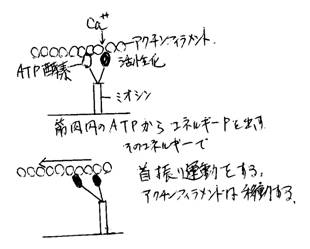 Ca++
アクチンフィラメント
ATP酵素
活性化
ミオシン
筋肉内のATPからエネルギーPを出す
そのエネルギーで
首振り運動をする。
アクチンフィラメントは移動する。